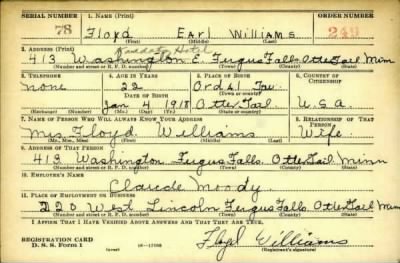 SERIAL NUMBER 1. NAME (Print) ORDER NUMBER
78 Floyd Earl Williams 249
(First) (Middle) (Last)
2. ADDRESS (Print) Hotel
413 Washington E. Fergus Falls Otter Tail Minn
(Number and street or R. F. D. number) (Town) (County) (State)
3. TELEPHONE 4. AGE IN YEARS 5. PLACE OF BIRTH 6. COUNTRY OF CITIZENSHIP
none 22
DATE OF BIRTH (Town or county)
Jan 4 1918 Otter Tail U.S.A.
(Exchange) (Number) (Mo.) (Day) (Yr.) (State or country)
7. NAME OF PERSON WHO WILL ALWAYS KNOW YOUR ADDRESS 8. RELATIONSHIP OF THAT PERSON
Mrs. Floyd Williams Wife
(Mr., Mrs., Miss) (First) (Middle) (Last)
9. ADDRESS OF THAT PERSON
413 Washington Fergus Falls. Otter Tail Minn
(Number and street or R. F. D. number) (Town) (County) (State)
10. EMPLOYER'S NAME
Claude Moody
11. PLACE OF EMPLOYMENT OR BUSINESS
220 West Lincoln Fergus Falls. Otter Tail Minn
(Number and street or R. F. D. number) (Town) (County) (State)
I AFFIRM THAT I HAVE VERIFIED ABOVE ANSWERS AND THAT THEY ARE TRUE.
REGISTRATION CARD
D. S. S. Form 1
Floyd Williams
(Registrant's signature)